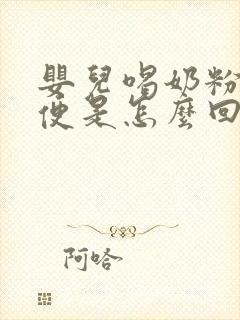 嬰兒喝奶粉
便是怎麼回
阿哈